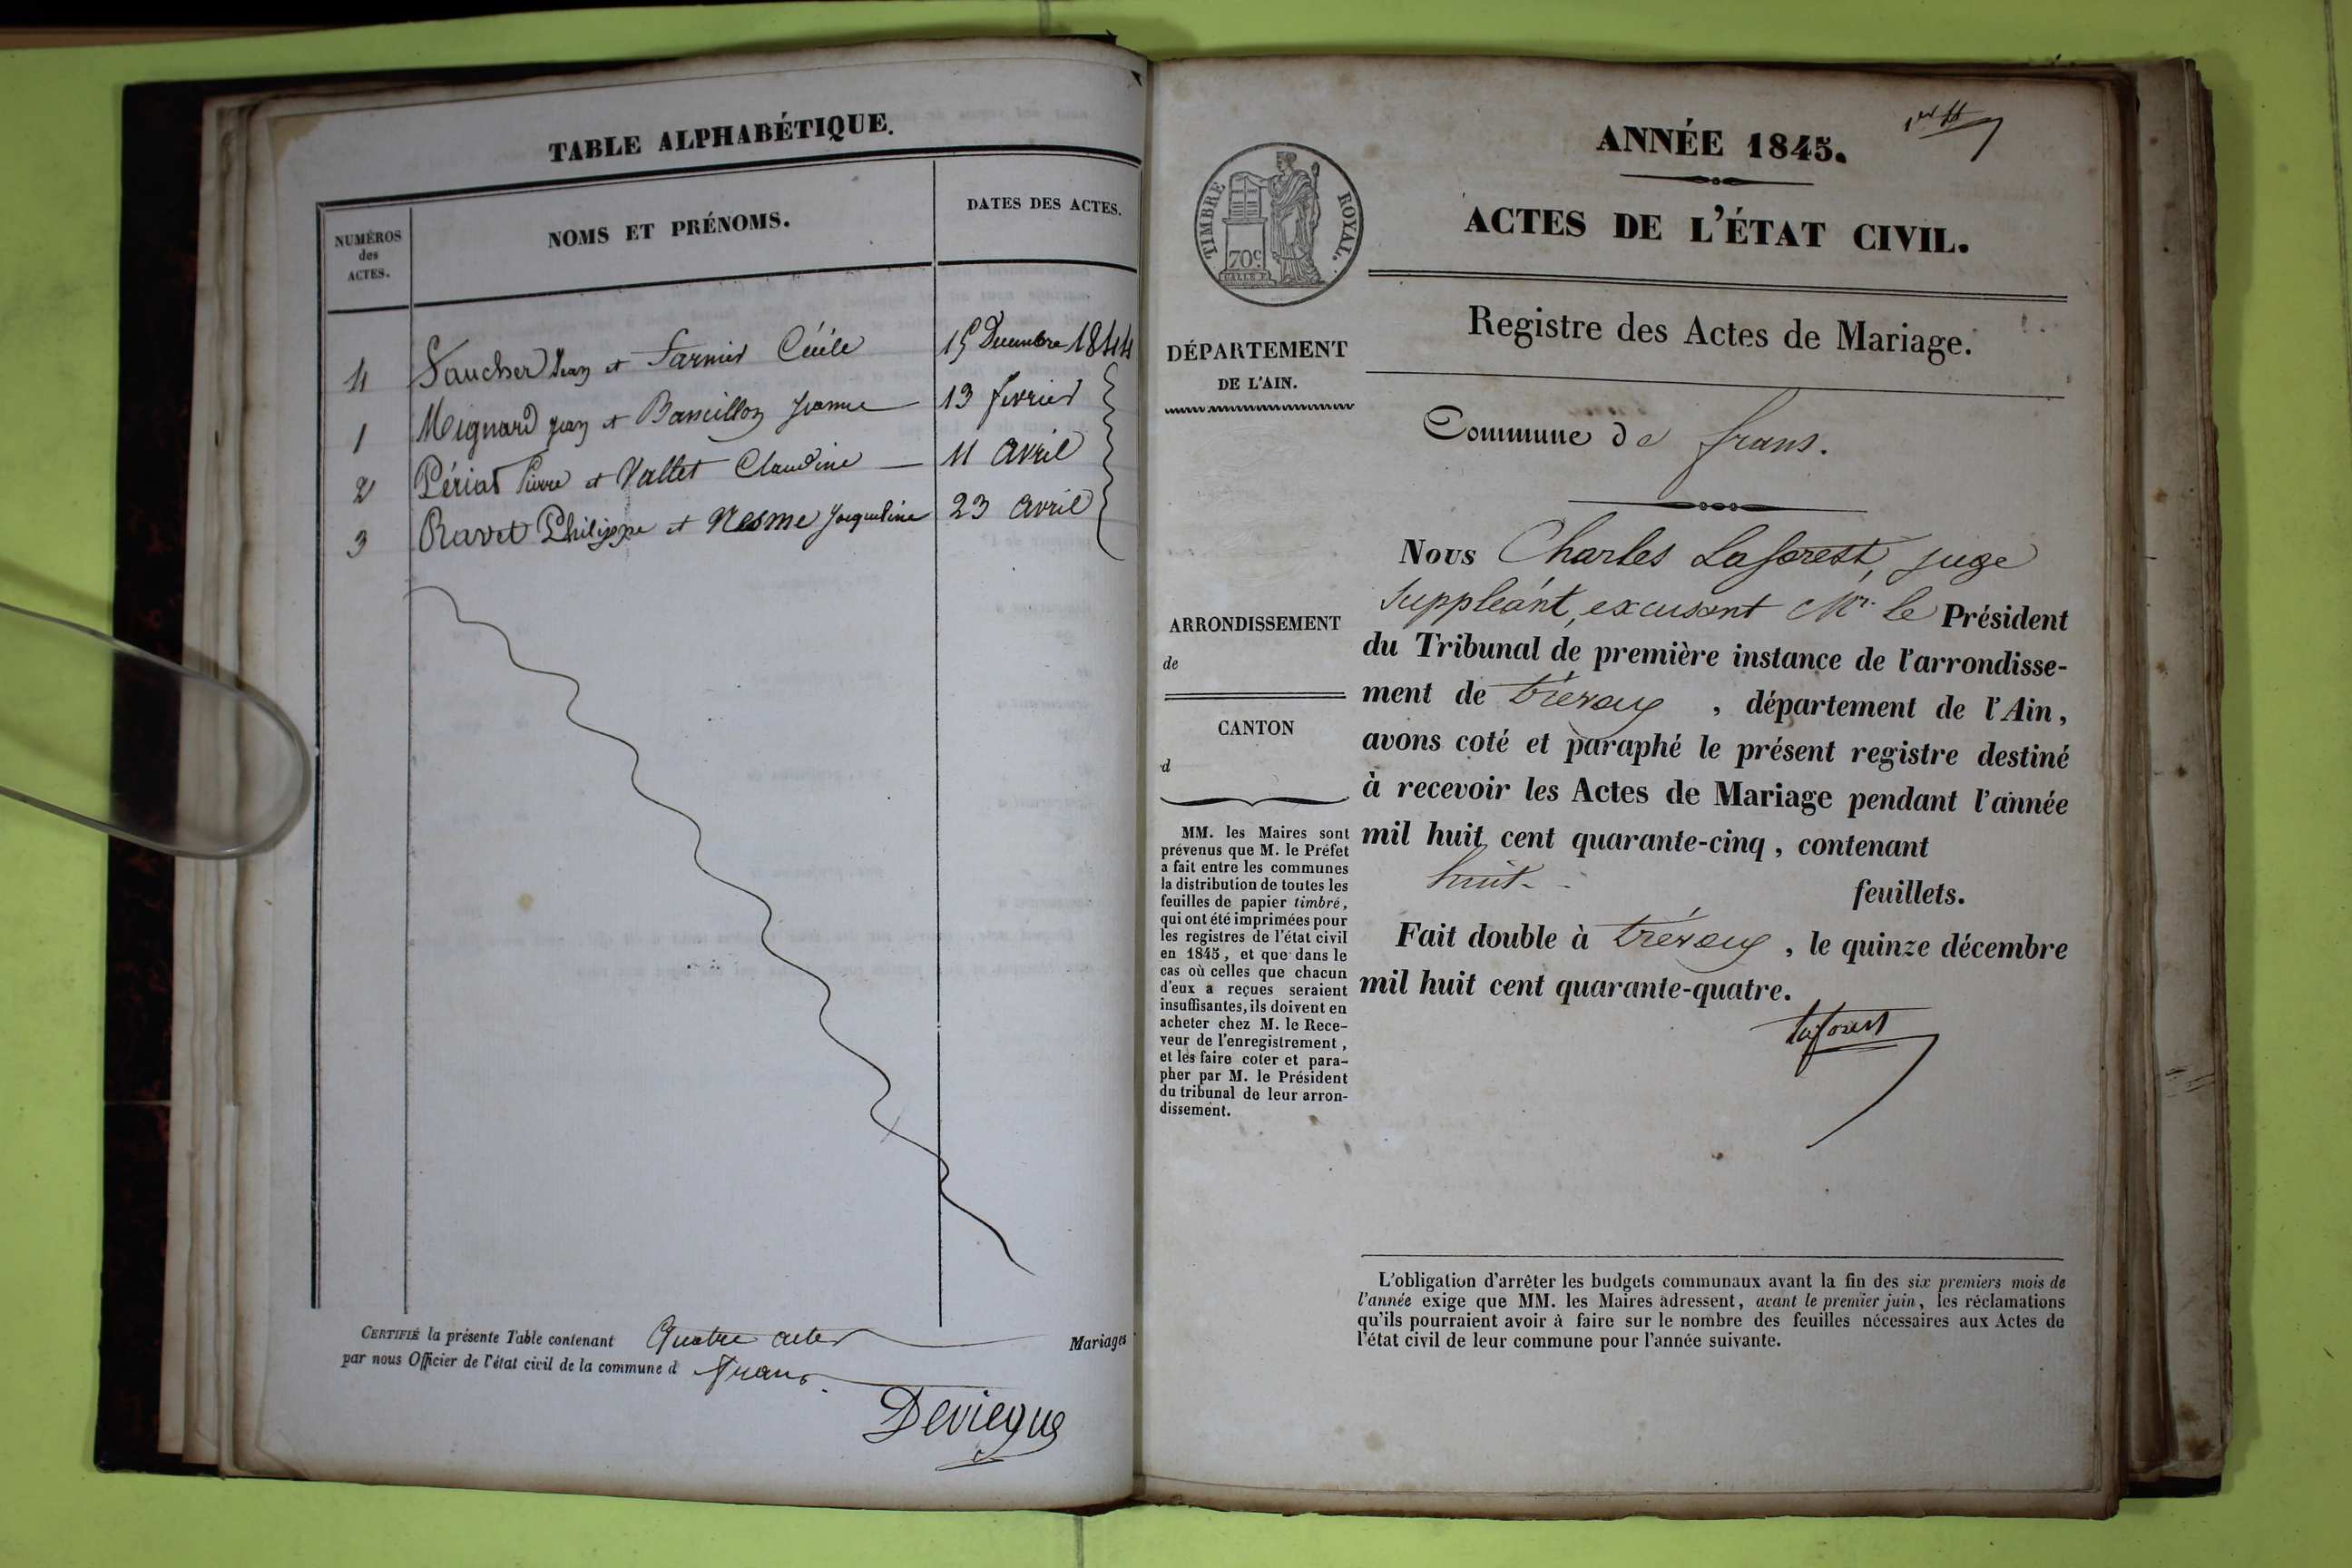 TABLE ALPHABÉTIQUE.
NUMÉROS
des
ACTES.
NOMS ET PRÉNOMS.
DATES DES ACTES.
4 Faucher Jean et Farnier Cécile 15 Decembre 1844
1 Mignard jean et jeanne 13 fevrier
2 Périat Pierre et Vallet Claudine 11 avril
3 Ravet Philippe et Nesme jacqueline 23 avril
CERTIFIÉ la présente Table contenant Quatre actes Mariages
par nous Officier de l'état civil de la commune d frans.
Devieque
1er
ANNÉE 1845.
ACTES DE L'ÉTAT CIVIL.
TIMBRE ROYAL.
70c
Registre des Actes de Mariage.
DÉPARTEMENT
DE L'AIN.
Commune de frans.
ARRONDISSEMENT
de
CANTON
d
MM. les Maires sont
prévenus que M. le Préfet
a fait entre les communes
la distribution de toutes les
feuilles de papier timbré,
qui ont été imprimées pour
les registres de l'état civil
en 1845, et que dans le
cas où celles que chacun
d'eux a reçues seraient
insuffisantes, ils doivent en
acheter chez M. le Rece-
veur de l'enregistrement,
et les faire coter et para-
pher par M. le Président
du tribunal de leur arron-
dissement.
Nous Charles Laforest, juge
Suppléant, excusant Mr. le Président
du Tribunal de première instance de l'arrondisse-
ment de trévoux, département de l'Ain,
avons coté et paraphé le présent registre destiné
à recevoir les Actes de Mariage pendant l'année
mil huit cent quarante-cinq, contenant
huit feuillets.
Fait double à trévoux, le quinze décembre
mil huit cent quarante-quatre.
Laforest
L'obligation d'arrêter les budgets communaux avant la fin des six premiers mois de
l'année exige que MM. les Maires adressent, avant le premier juin, les réclamations
qu'ils pourraient avoir à faire sur le nombre des feuilles nécessaires aux Actes de
l'état civil de leur commune pour l'année suivante.